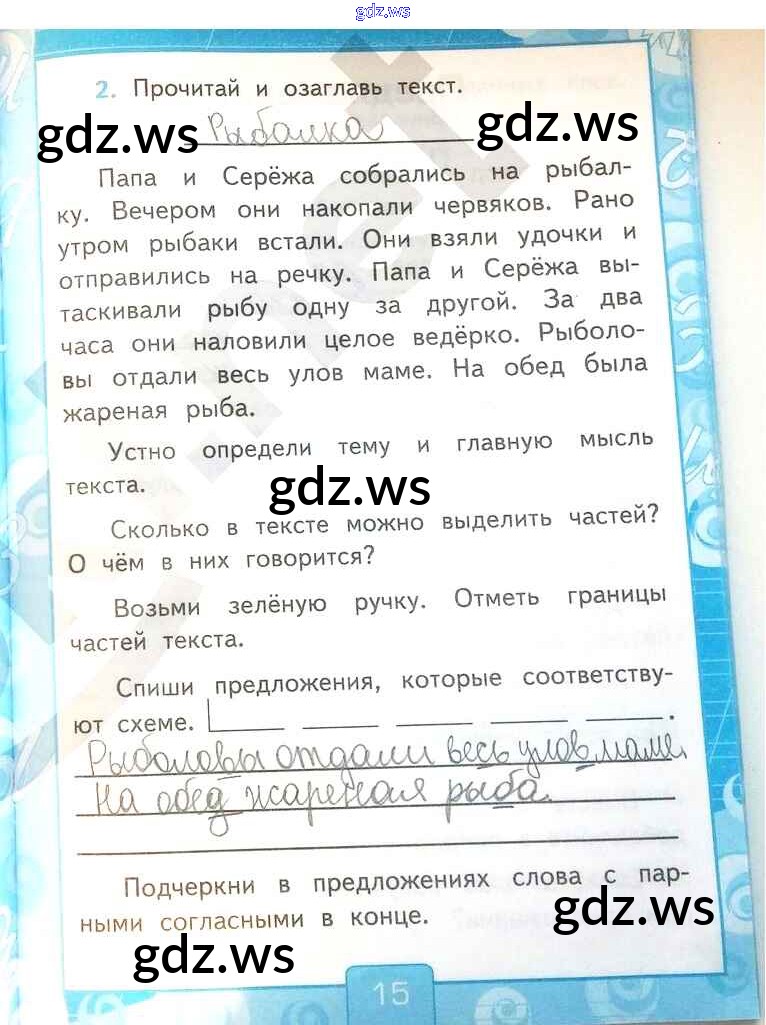 gdz.ws
2. Прочитай и озаглавь текст.
gdz.ws Рыбалка gdz.ws
Папа и Серёжа собрались на рыбал-
ку. Вечером они накопали червяков. Рано
утром рыбаки встали. Они взяли удочки и
отправились на речку. Папа и Серёжа вы-
таскивали рыбу одну за другой. За два
часа они наловили целое ведёрко. Рыболо-
вы отдали весь улов маме. На обед была
жареная рыба.
Устно определи тему и главную мысль
текста.
gdz.ws
Сколько в тексте можно выделить частей?
О чём в них говорится?
Возьми зелёную ручку. Отметь границы
частей текста.
Спиши предложения, которые соответству-
ют схеме.
Рыболовы отдали весь улов маме.
На обед жареная рыба.
Подчеркни в предложениях слова с пар-
ными согласными в конце.
gdz.ws
gdz.ws
15